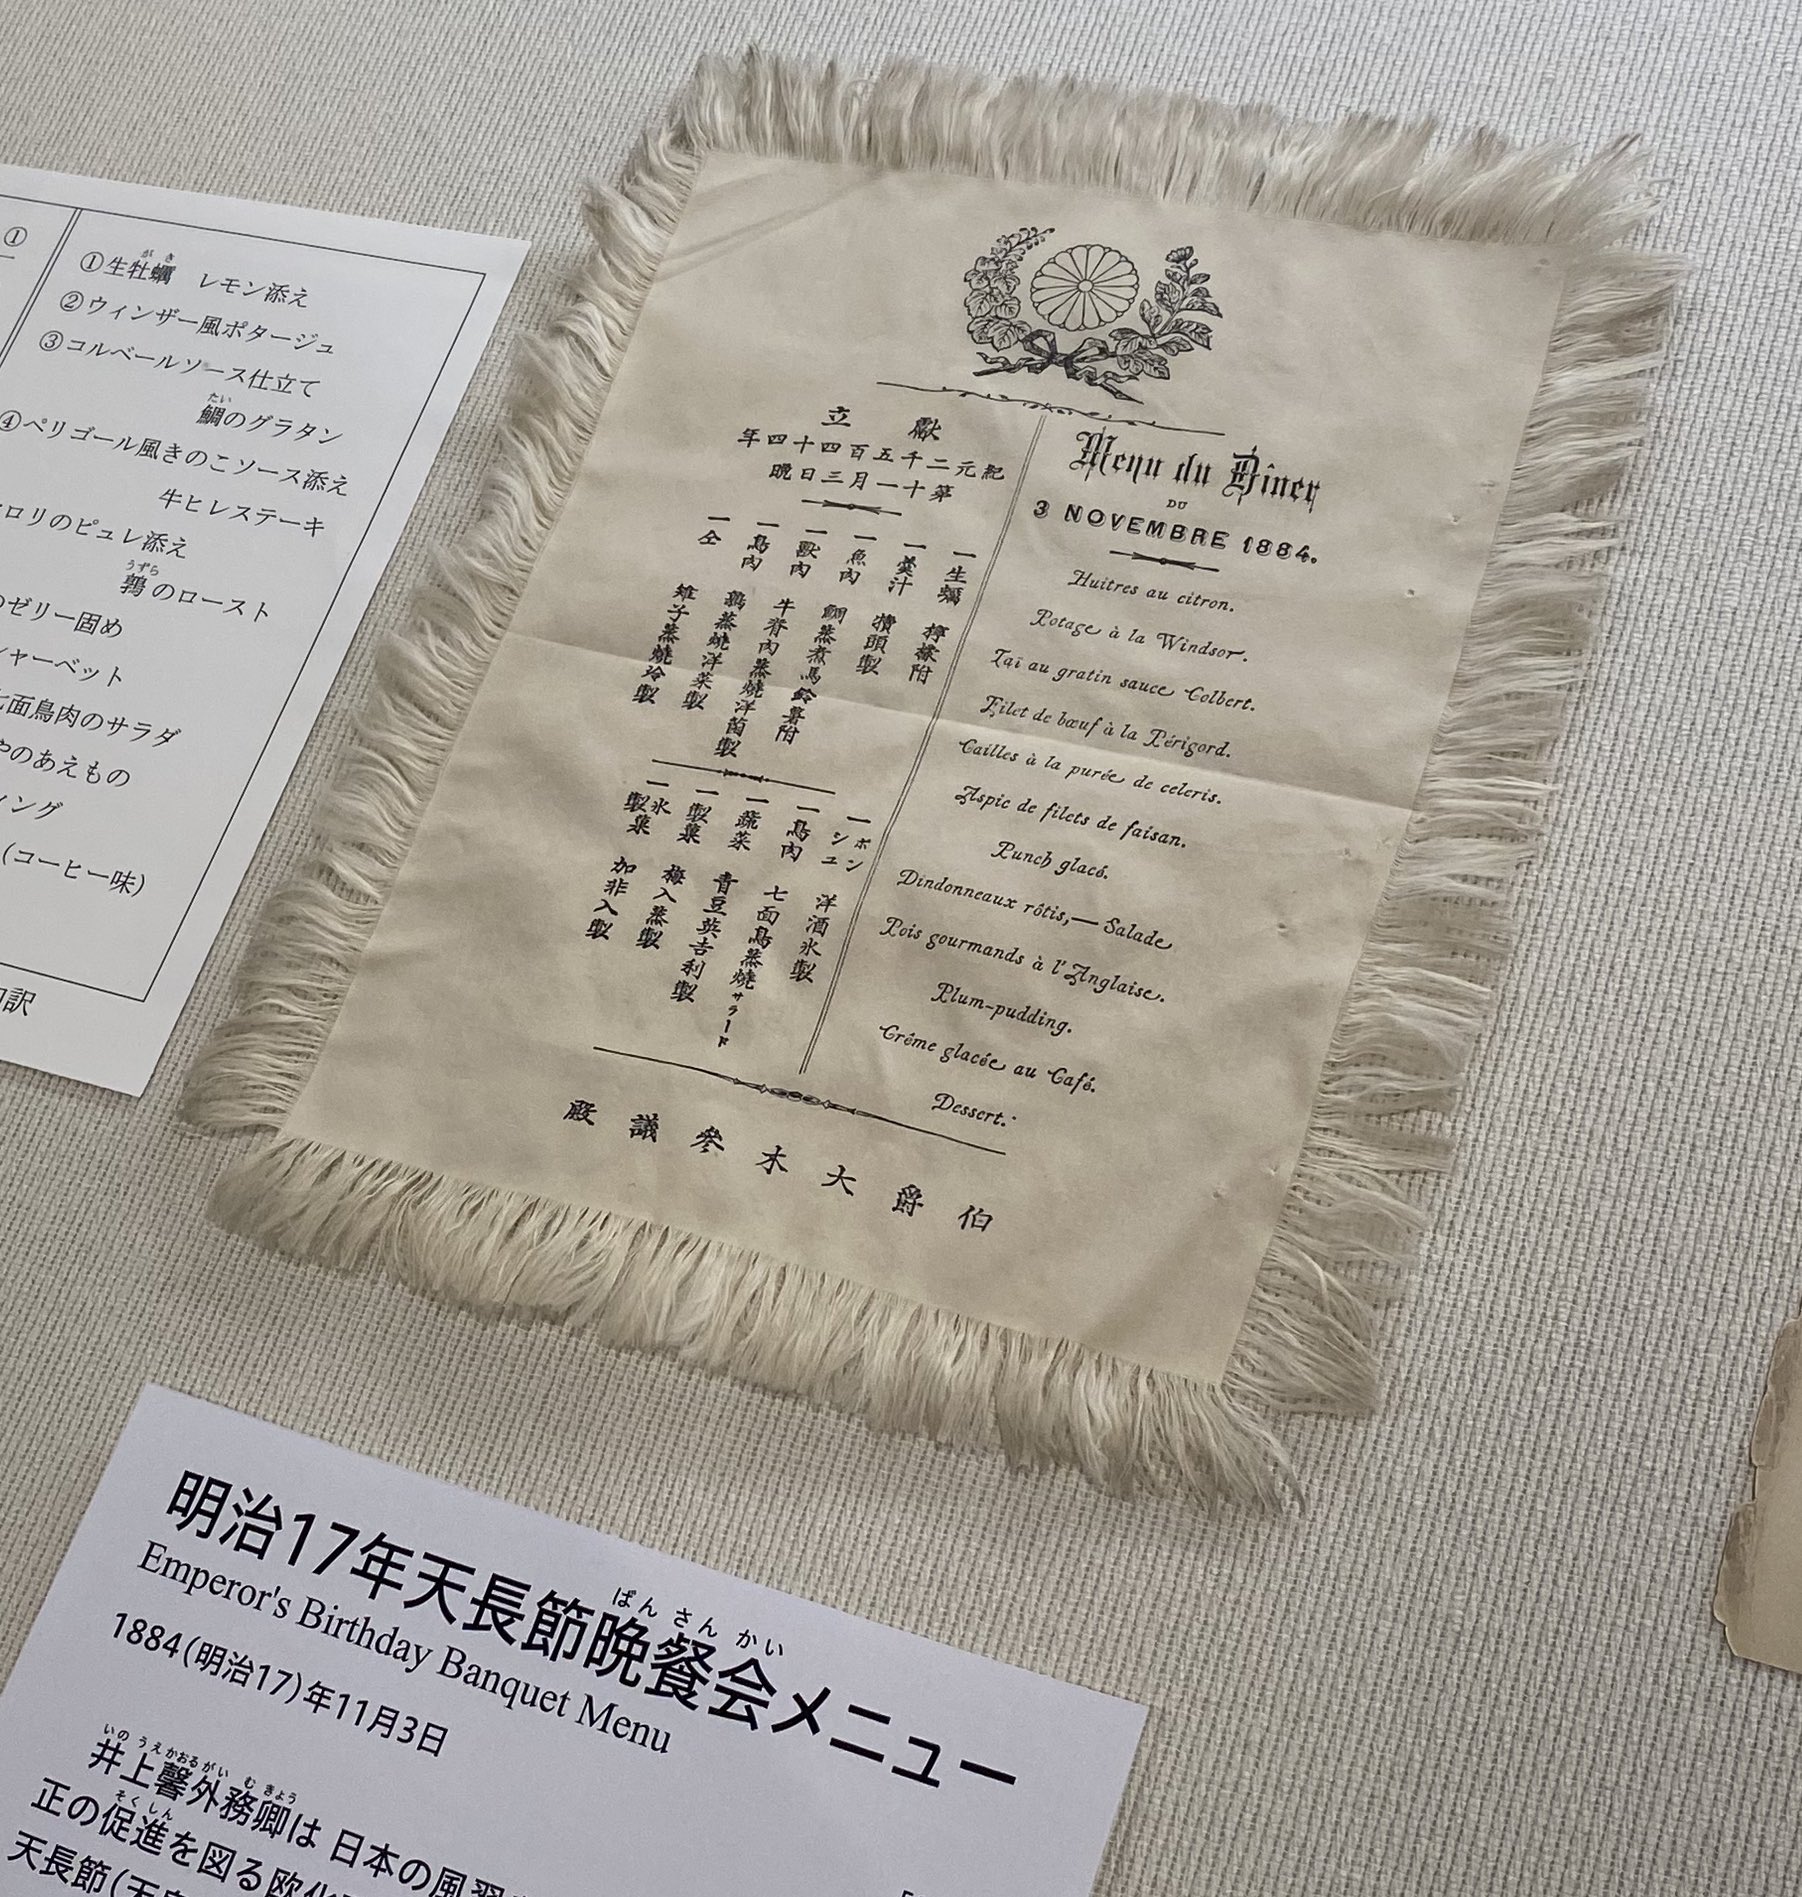 ①
①生牡蠣　レモン添え
がき
②ウィンザー風ポタージュ
③コルベールソース仕立て
鯛のグラタン
たい
④ペリゴール風きのこソース添え
牛ヒレステーキ
ロリのピュレ添え
鶉のロースト
うずら
ゼリー固め
ャーベット
面鳥肉のサラダ
やのあえもの
ィング
(コーヒー味)
訳
獻立
紀元二千五百四十四年
第十一月三日晩
一生蠣　檸檬附
一羹汁　積頭製
一魚肉　鯛蒸煮馬鈴薯附
一獸肉　牛脊肉蒸燒洋菌製
一鳥肉　鶉蒸燒洋菜製
一仝　雉子蒸燒冷製
一ポンシュ　洋酒氷製
一鳥肉　七面鳥蒸燒サラード
一蔬菜　青豆英吉利製
一製菓　梅入蒸製
一氷製菓　加非入製
Menu du Dîner
DU
3 NOVEMBRE 1884.
Huitres au citron.
Potage à la Windsor.
Taï au gratin sauce Colbert.
Filet de bœuf à la Périgord.
Cailles à la purée de celeris.
Aspic de filets de faisan.
Punch glacé.
Dindonneaux rôtis,—Salade
Pois gourmands à l'Anglaise.
Plum-pudding.
Crême glacée au Café.
Dessert.
伯爵大木參議殿
明治17年天長節晩餐会メニュー
ばんさんかい
Emperor's Birthday Banquet Menu
1884(明治17)年11月3日
いのうえかおるがいむきょう
井上馨外務卿は 日本の風習
そくしん
正の促進を図る欧化
天長節(天